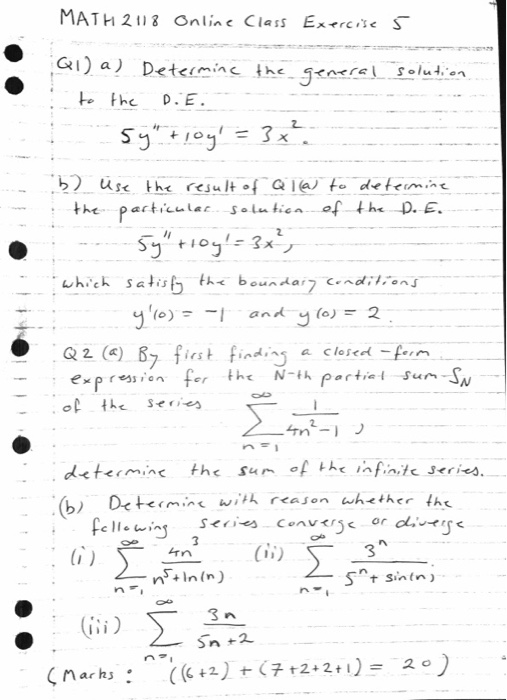 MATH 2118 Online Class Exercise 5
Q1) a) Determine the general solution
to the D.E.
5y" + 10y' = 3x².
b) Use the result of Q1(a) to determine
the particular solution of the D.E.
5y" + 10y' = 3x²,
which satisfy the boundary conditions
y'(0) = -1 and y(0) = 2.
Q2 (a) By first finding a closed-form
expression for the N-th partial sum S_N
of the series ∑_{n=1}^{∞} 1/(4n²-1),
determine the sum of the infinite series.
(b) Determine with reason whether the
following series converge or diverge
(i) ∑_{n=1}^{∞} 4n³/(n⁵+ln(n)) (ii) ∑_{n=1}^{∞} 3ⁿ/(5ⁿ+sin(n))
(iii) ∑_{n=1}^{∞} 3n/(5n+2)
(Marks: ((6+2) + (7+2+2+1) = 20)